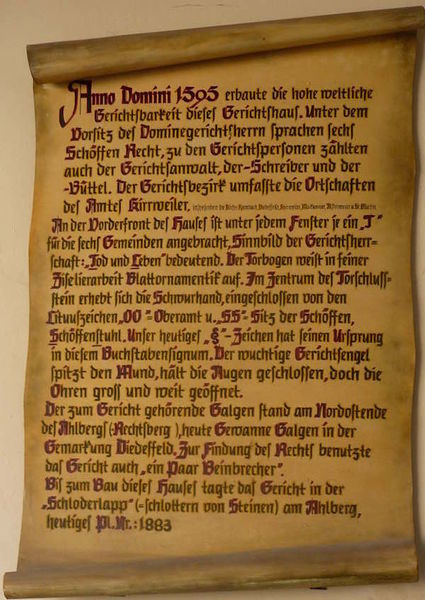 Anno Domini 1595 erbaute die hohe weltliche
Gerichtsbarkeit dieses Gerichtshaus. Unter dem
Vorsitz des Dominegerichtsherrn sprachen sechs
Schöffen Recht, zu den Gerichtspersonen zählten
auch der Gerichtsanwalt, der-Schreiber und der
-Büttel. Der Gerichtsbezirk umfasste die Ortschaften
des Amtes Kirrweiler,
An der Vorderfront des Hauses ist unter jedem Fenster je ein „T"
für die sechs Gemeinden angebracht, Sinnbild der Gerichtsherr-
schaft: „Tod und Leben" bedeutend. Der Torbogen weist in seiner
Ziselierarbeit Blattornamentik auf. Im Zentrum des Torschluss-
stein erhebt sich die Schwurhand, eingeschlossen von den
Lituuszeichen, „OO"- Oberamt u. „SS"- Sitz der Schöffen,
Schöffenstuhl. Unser heutiges „§"- Zeichen hat seinen Ursprung
in diesem Buchstabensignum. Der wuchtige Gerichtsengel
spitzt den Mund, hält die Augen geschlossen, doch die
Ohren gross und weit geöffnet.
Der zum Gericht gehörende Galgen stand am Nordostende
des Ahlbergs (-Rechtsberg), heute Gewanne Galgen in der
Gemarkung Diedesfeld. Zur Findung des Rechts benutzte
das Gericht auch „ein Paar Beinbrecher".
Bis zum Bau dieses Hauses tagte das Gericht in der
„Schloderlapp" (=schlottern von Steinen) am Ahlberg,
heutiges Pl. Nr.: 1883